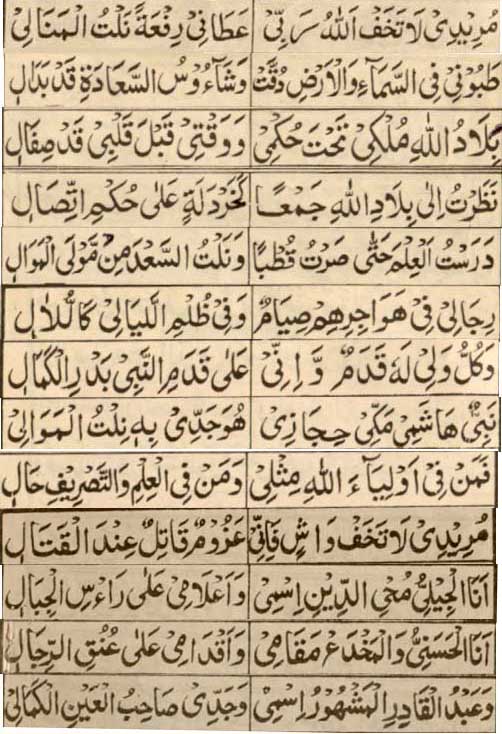 مُرِيْدِىْ لَا تَخَفْ اَللهُ رَبِّىْ عَطَانِىْ رِفْعَةً نِلْتُ الْمَنَالِىْ
طُبُوْلِىْ فِى السَّمَآءِ وَالْاَرْضِ دُقَّتْ وَشَآءُوْسُ السَّعَادَةِ قَدْ بَدَالِ
بِلَادُ اللهِ مُلْكِىْ تَحْتَ حُكْمِىْ وَوَقْتِىْ قَبْلَ قَلْبِىْ قَدْ صِفَالِ
نَظَرْتُ اِلٰى بِلَادِ اللهِ جَمْعًا كَخَرْدَلَةٍ عَلٰى حُكْمِ اتِّصَالِ
دَرَسْتُ الْعِلْمَ حَتّٰى صِرْتُ قُطْبًا وَنِلْتُ السَّعْدَ مِنْ مَّوْلَى الْمَوَالِ
رِجَالِىْ فِىْ هَوَاجِرِهِمْ صِيَامٌ وَفِىْ ظُلَمِ اللَّيَالِىْ كَاللُّاٰلِ
وَكُلُّ وَلِىٍّ لَهٗ قَدَمٌ وَّاِنِّىْ عَلٰى قَدَمِ النَّبِىِّ بَدْرِ الْكَمَالِ
نَبِىٌّ هَاشَمِىٌّ مَكِّىٌّ حِجَازِىْ هُوَ جَدِّىْ بِهٖ نِلْتُ الْمَوَالِىْ
فَمَنْ فِىْ اَوْلِيَآءِ اللهِ مِثْلِىْ وَمَنْ فِى الْعِلْمِ وَالتَّصْرِيْفِ حَالِ
مُرِيْدِىْ لَا تَخَفْ وَاشٍ فَاِنِّىْ عَزُوْمٌ قَاتِلٌ عِنْدَ الْقِتَالِ
اَنَا الْجِيْلِىُّ مُحْىِ الدِّيْنِ اِسْمِىْ وَاَعْلَامِىْ عَلٰى رَاْسِ الْجِبَالِ
اَنَا الْحَسَنِىُّ وَالْمَخْدَعْ مَقَامِىْ وَاَقْدَامِىْ عَلٰى عُنُقِ الرِّجَالِ
وَعَبْدُ الْقَادِرِ الْمَشْهُوْرُ اِسْمِىْ وَجَدِّىْ صَاحِبُ الْعَيْنِ الْكَمَالِىْ